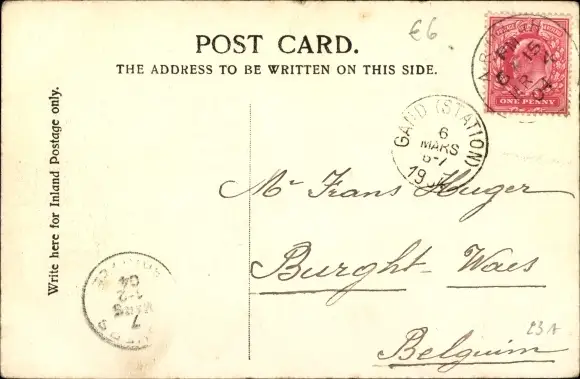 €6
POST CARD.
THE ADDRESS TO BE WRITTEN ON THIS SIDE.
ONE PENNY
GAND (STATION)
6
MARS
6-7
Write here for Inland Postage only.
Mr Frans Huger
Burght - Waes
Belguim
23A
7
MARS
1-2
04